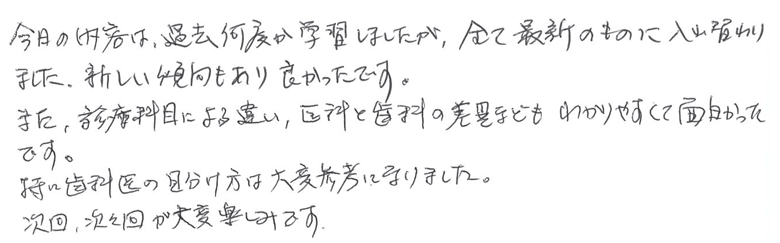 今日の内容は、過去何度か学習しましたが、全て最新のものに入れ替わり
ました。新しい傾向もあり良かったです。
また、診療科目による違い、医科と歯科の差異なども わかりやすくて面白かった
です。
特に歯科医の見分け方は大変参考になりました。
次回、次々回が大変楽しみです。